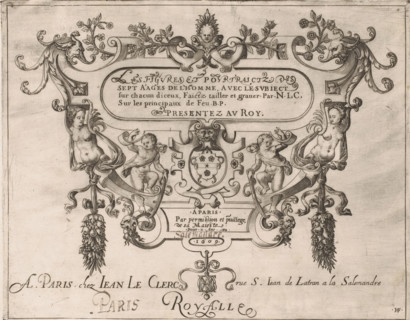 LES FIGVRES ET POVRTRAICTZ DES
SEPT AAGES DE L'HOMME, AVEC LE SVBIECT
sur chacun d'iceux, Faictes tailler et grauer. Par. N. L. C.
Sur les principaux de Feu. B. P.
PRESENTEZ AV ROY.
A PARIS.
Par permission et priuilege
de sa Maieste
1609
A PARIS. chez JEAN LE CLERC rue S. Iean de Latran a la Salemandre
PARIS ROYALLE